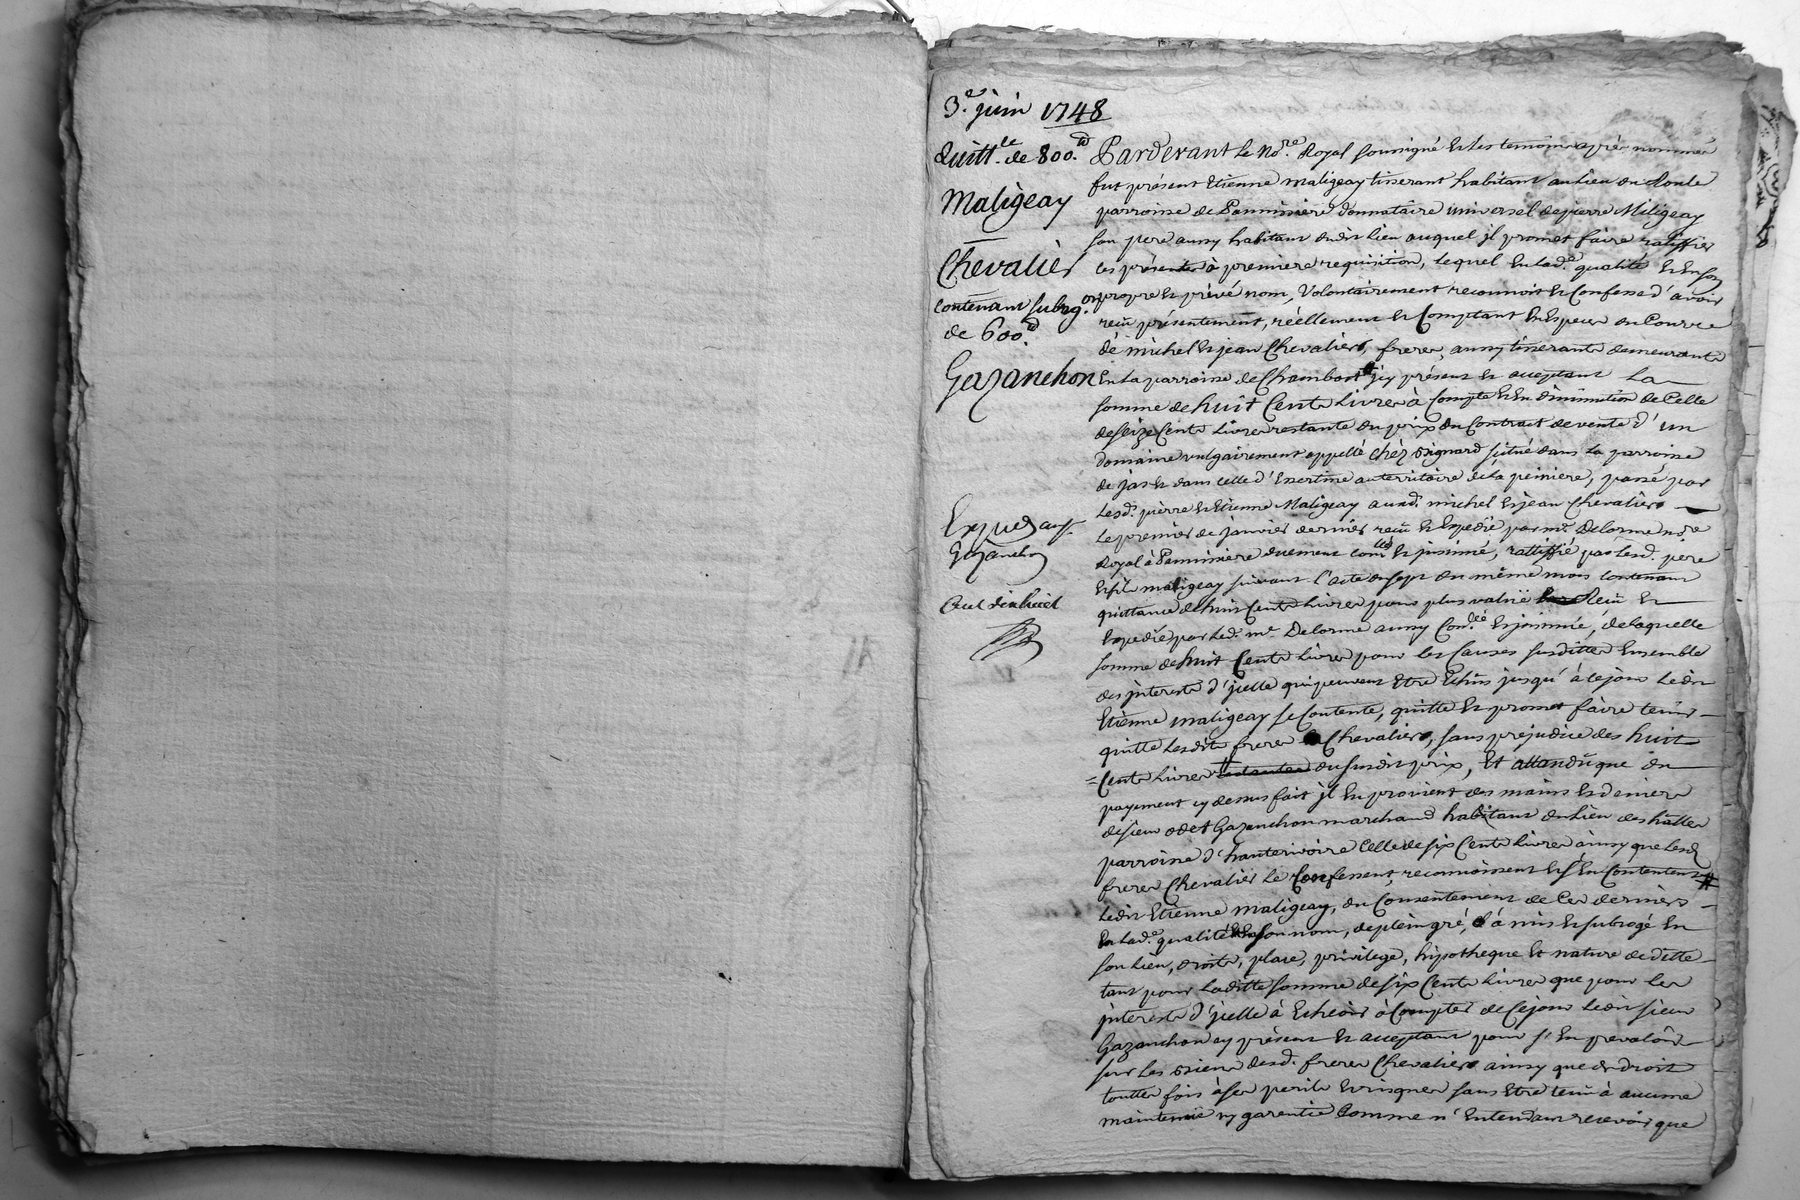 3.e juin 1748
Quitt.ce de 800.tt
Maligeay
Chevalier
contenant subrog.on
de 600.tt
Gazanchon
Exped. au s.r
Gazanchon
Pardevant le no.re Royal soussigné et les temoins après nommés
fut présent Etienne Maligeay tisserant habitant au lieu du
parroisse de Pannissiere donnataire universel de pierre Maligeay
son pere aussy habitant dudit lieu auquel jl promet faire ratiffier
ces présentes à premiere requisition, lequel en lad.e qualité et en son
propre et privé nom, volontairement reconnoit et confesse d'avoir
reçu présentement, réellement et comptant en especes du cours
de michel et jean Chevaliers, freres, aussy tisserants demeurants
en la parroisse de Chambost jcy présent et acceptant la
somme de huit cents livres à compte et en diminution de celle
de seize cents livres restante du prix du contract de vente d'un
domaine vulgairement appellé chéz situé dans la parroisse
de jas et dans celle d'Essertine au territoire de la, passé par
lesd. pierre et Etienne Maligeay ausd. michel et jean Chevaliers
le premier de janvier dernier reçu et Expedié par m.e Delorme no.re
Royal à Pannissiere duement con.llé et jnsinué, rattiffié par lesd. pere
et fils maligeay suivant l'acte du sept du même mois contenant
quittance de huit cents livres pour plus valüe reçu et
Expedié par led. m.e Delorme aussy con.llé et jnsinué, de laquelle
somme de huit cents livres pour les causes susdittes Ensemble
des jnterests d'jcelle qui peuvent Etre Echus jusqu'à ce jour ledit
Etienne maligeay se contente, quitte et promet faire tenir
quitte lesdits freres Chevaliers, sans préjudice des huit
cents livres restantes du susdit prix, Et attandû que du
payement cy dessus fait jl en provient des mains et deniers
de sieur odet Gazanchon marchand habitant du lieu des halles
parroisse d'hauterivoire celle de six cents livres ainsy que lesd.
freres Chevalier le confessent, reconnoissent et s'en contentent #
ledit Etienne maligeay, du consentement de ces derniers
en lad.e qualité et en son nom, de plein gré, à mis et subrogé en
son lieu, droits, place, privilege, hipotheque et nature de dette
tant pour laditte somme de six cents livres que pour les
jnterests d'jcelle à Echeoir à compter de ce jour ledit sieur
Gazanchon cy présent et acceptant pour s'en prevaloir
sur les biens desd. freres Chevaliers ainsy que de droit
touttes fois à ses perils et risques sans Etre tenu à aucune
maintenüe ny garentie comme n'entendant recevoir que